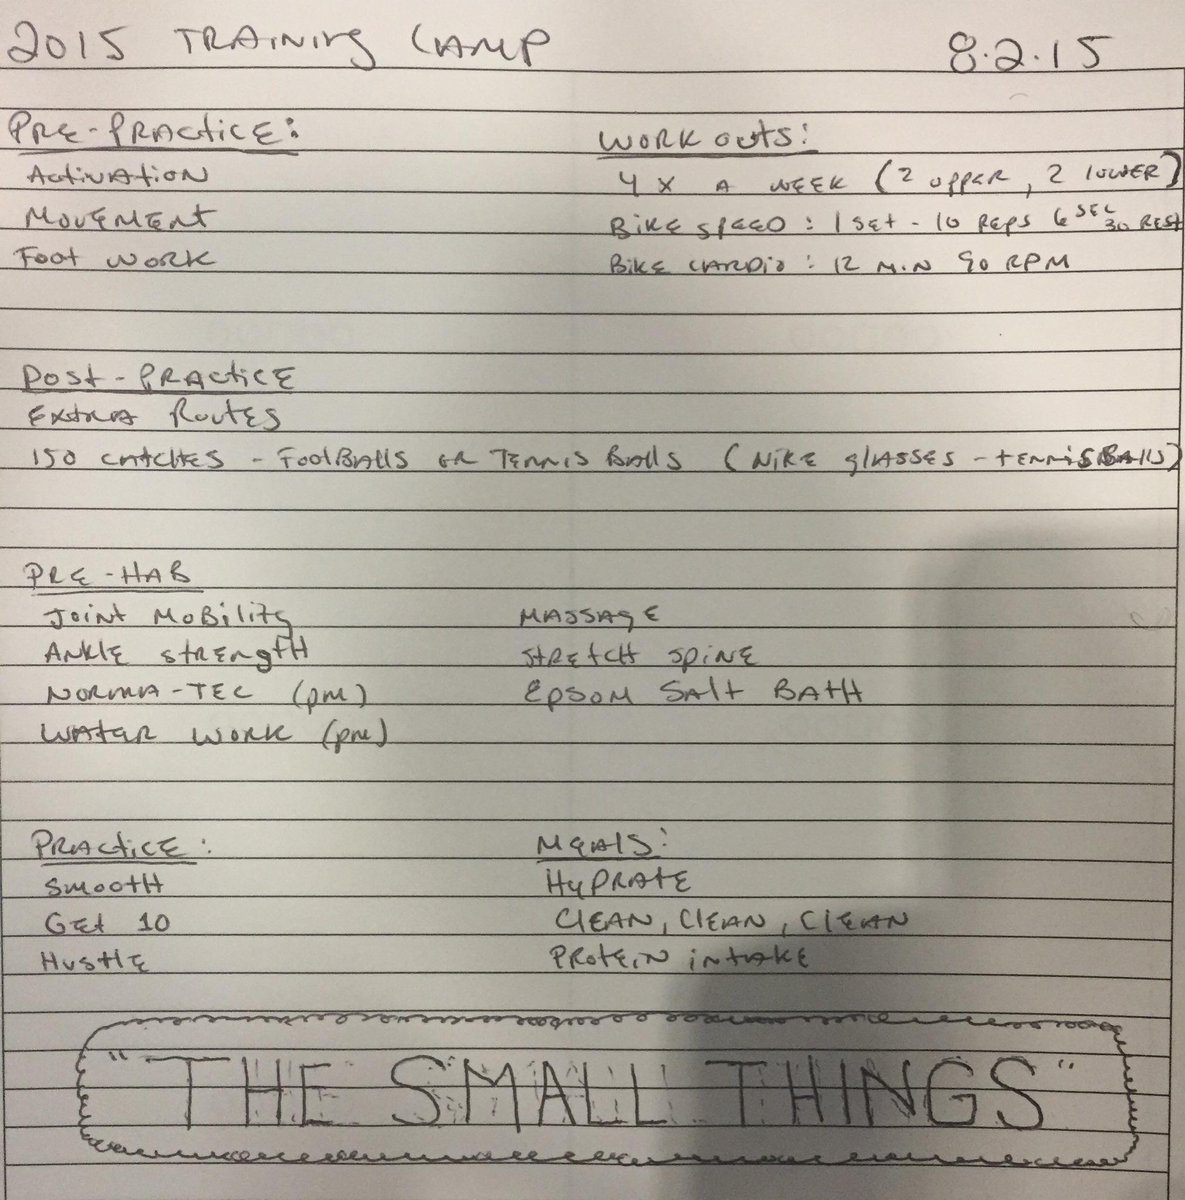 2015 TRAINING CAMP 8.2.15
PRE-PRACTICE:
ACTIVATION
MOVEMENT
FOOT WORK
WORKOUTS:
4 X A WEEK (2 UPPER, 2 LOWER)
BIKE SPEED: 1 SET - 10 REPS 6 SEC 30 REST
BIKE CARDIO: 12 MIN 90 RPM
POST-PRACTICE
EXTRA ROUTES
150 CATCHES - FOOTBALLS OR TENNIS BALLS (NIKE GLASSES - TENNIS BALLS)
PRE-HAB
JOINT MOBILITY
ANKLE STRENGTH
NORMA-TEC (PM)
WATER WORK (PM)
MASSAGE
STRETCH SPINE
EPSOM SALT BATH
PRACTICE:
SMOOTH
GET 10
HUSTLE
MEALS:
HYDRATE
CLEAN, CLEAN, CLEAN
PROTEIN INTAKE
"THE SMALL THINGS"